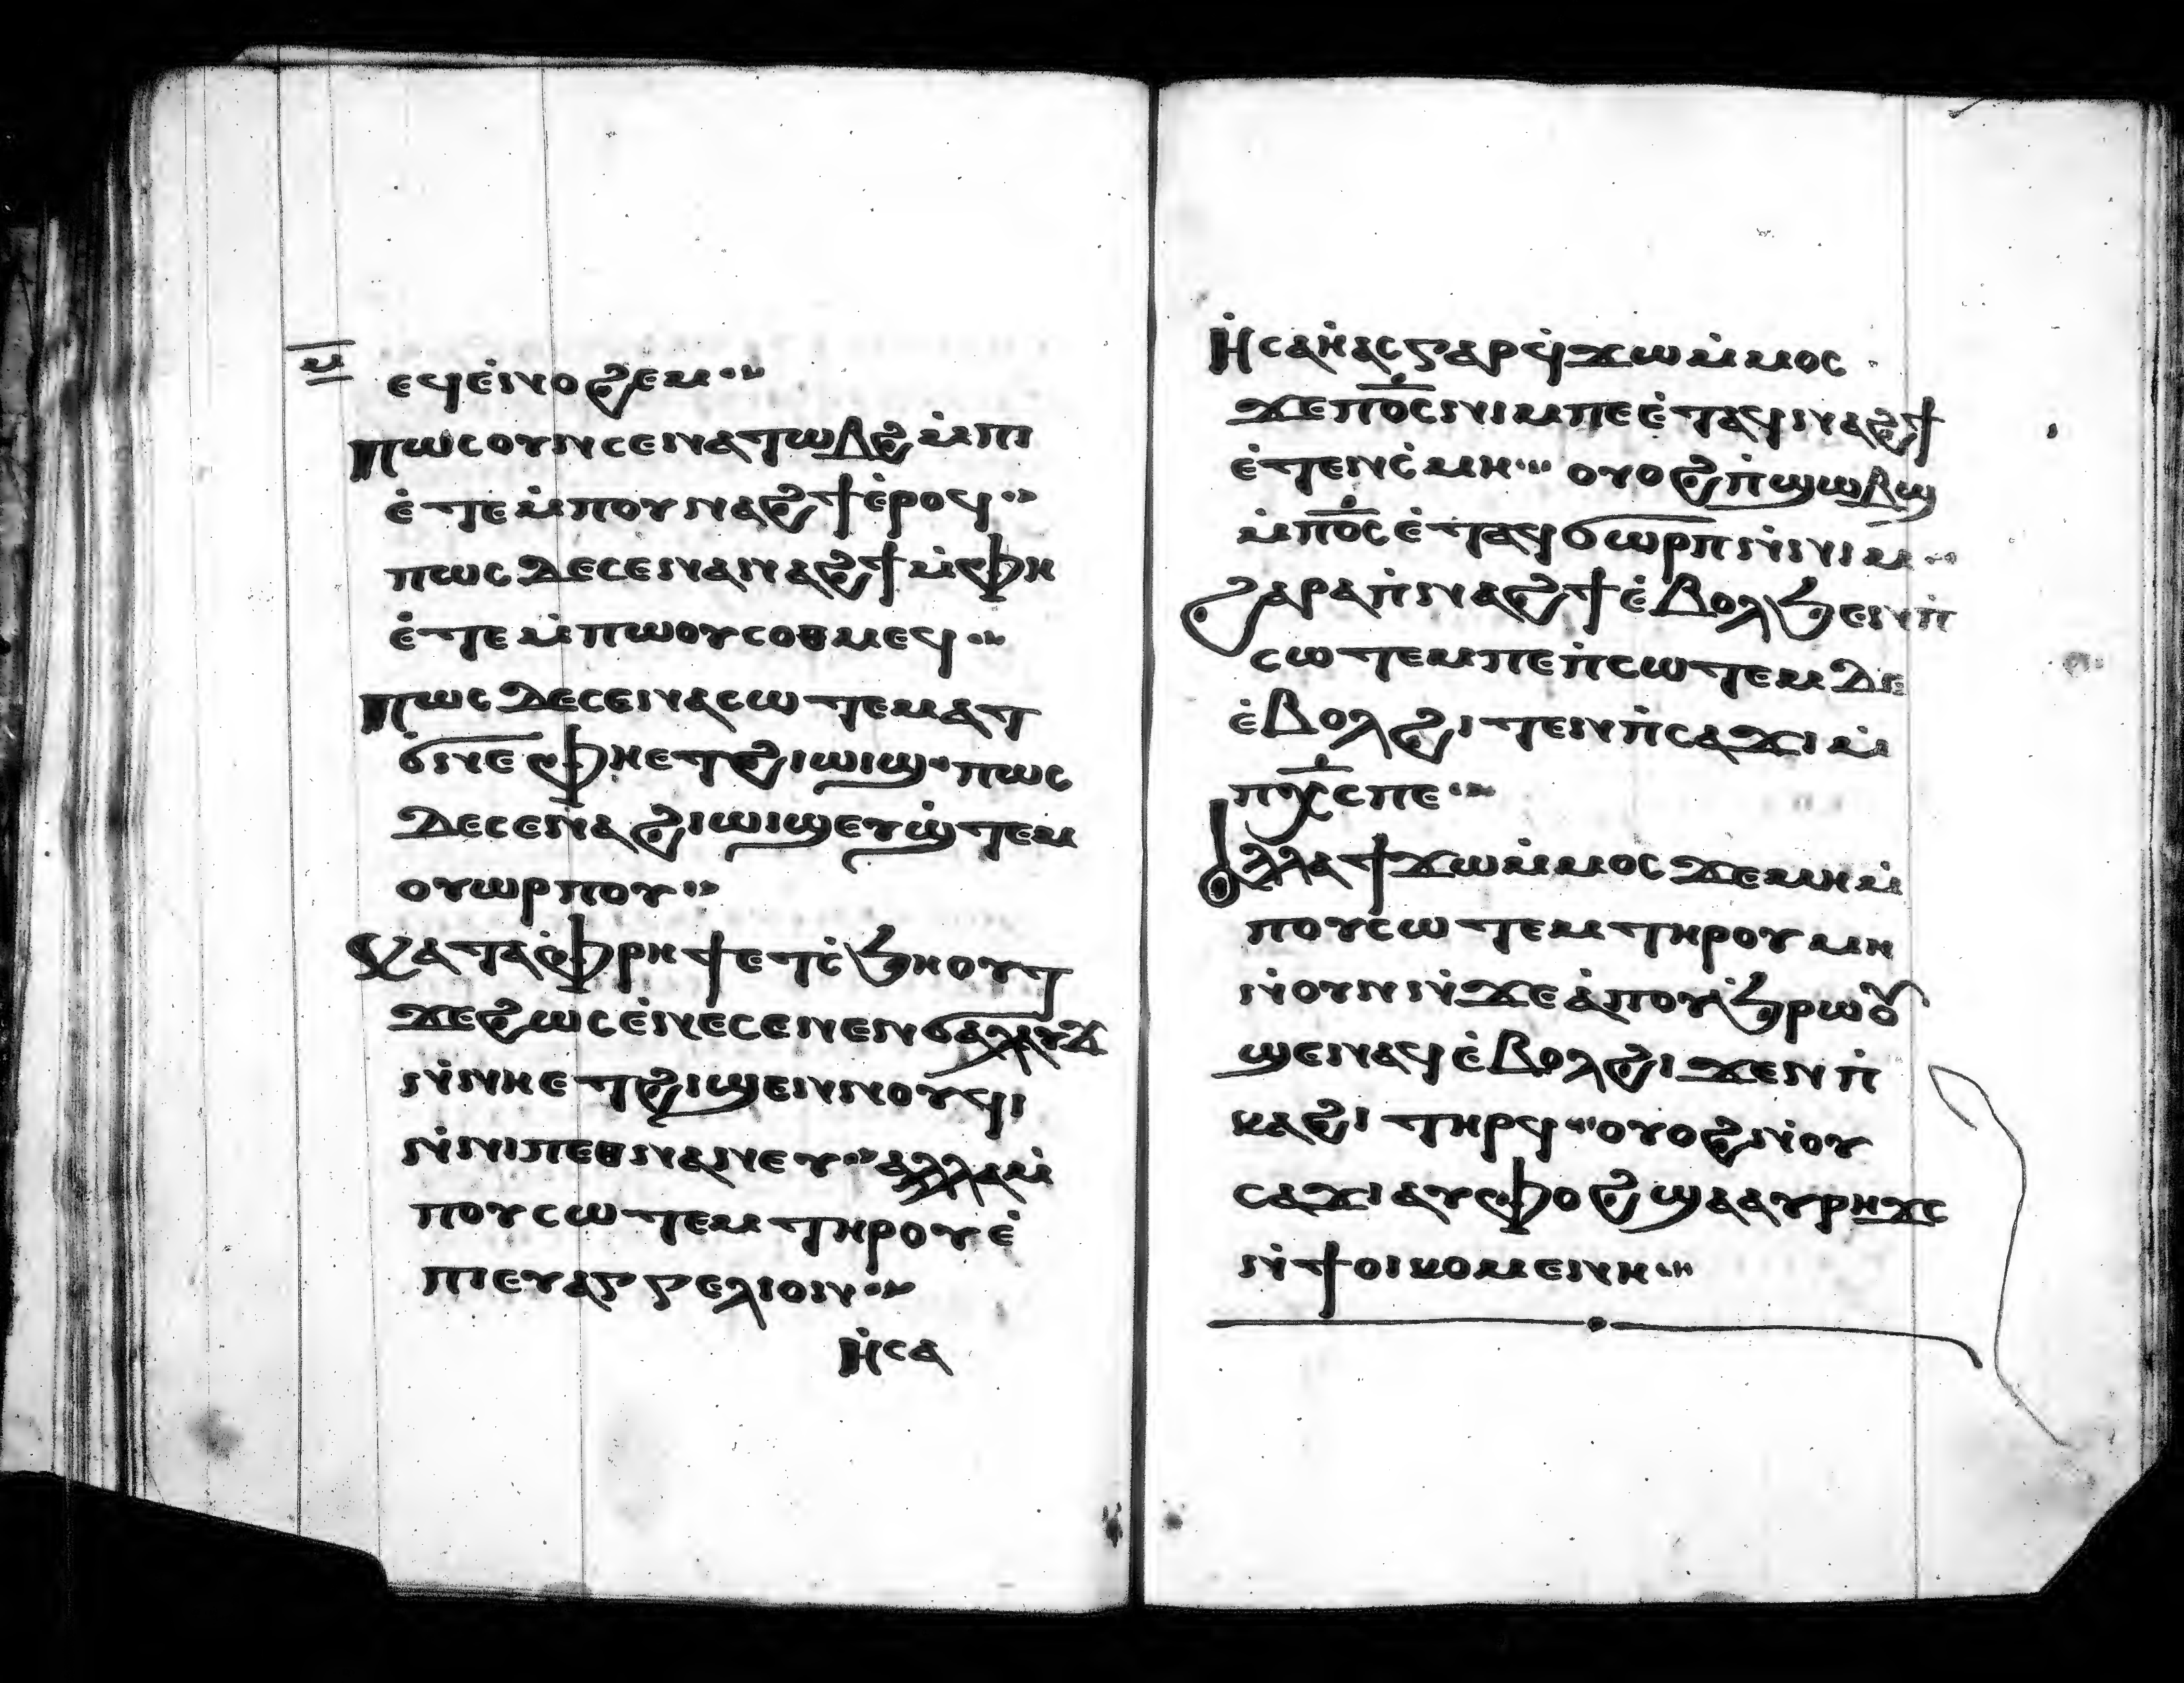 ⲙ
ⲉϥⲉ̀ⲛⲟϩⲉⲙ
ⲡⲱⲥ ⲟⲩⲛ ⲥⲉⲛⲁⲧⲱⲃϩ ⲙ̀ⲡⲓ
ⲉ̀ⲧⲉ ⲙ̀ⲡⲟⲩⲛⲁϩϯ ⲉ̀ⲣⲟϥ
ⲡⲱⲥ ⲇⲉ ⲥⲉⲛⲁⲛⲁϩϯ ⲙ̀ⲫⲏ
ⲉ̀ⲧⲉ ⲙ̀ⲡⲱⲟⲩⲥⲟⲑⲙⲉϥ
ⲡⲱⲥ ⲇⲉ ⲥⲉⲛⲁⲥⲱⲧⲉⲙ ⲁⲧ
ϭⲛⲉ ⲫⲏ ⲉⲧϩⲓⲱⲓϣ ⲡⲱⲥ
ⲇⲉ ⲥⲉⲛⲁϩⲓⲱⲓϣ ⲉⲩϣ̀ⲧⲉⲙ
ⲟⲩⲱⲣⲡⲟⲩ
ⲕⲁⲧⲁ ⲫⲣⲏϯ ⲉⲧⲥ̀ϧⲏⲟⲩⲧ
ϫⲉ ϩⲱⲥ ⲉ̀ⲛⲉⲥⲉ ⲛⲉⲛϭⲁⲗⲁⲩϫ
ⲛ̀ⲛⲏ ⲉⲧϩⲓϣⲉⲛⲛⲟⲩϥⲓ
ⲛ̀ⲛⲓⲡⲉⲑⲛⲁⲛⲉⲩ ⲁⲗⲗⲁ ⲙ̀
ⲡⲟⲩⲥⲱⲧⲉⲙ ⲧⲏⲣⲟⲩ ⲉ̀
ⲡⲓⲉⲩⲁⲅⲅⲉⲗⲓⲟⲛ
ⲏ̀ⲥⲁ
ⲏ̀ⲥⲁⲏ̀ⲁⲥ ⲅⲁⲣ ϥ̀ϫⲱ ⲙ̀ⲙⲟⲥ
ϫⲉ ⲡⲟ̅ⲥ̅ ⲛⲓⲙ ⲡⲉ ⲉ̀ⲧⲁϥⲛⲁϩϯ
ⲉ̀ⲧⲉⲛⲥ̀ⲙⲏ ⲟⲩⲟϩ ⲡ̀ϣⲱⲃϣ
ⲙ̀ⲡⲟ̅ⲥ̅ ⲉ̀ⲧⲁϥϭⲱⲣⲡ ⲛ̀ⲛⲓⲙ
ϩⲁⲣⲁ ⲡ̀ⲛⲁϩϯ ⲉ̀ⲃⲟⲗ ϧⲉⲛ ⲡ̀
ⲥⲱⲧⲉⲙ ⲡⲉ ⲡ̀ⲥⲱⲧⲉⲙ ⲇⲉ
ⲉ̀ⲃⲟⲗ ϩⲓⲧⲉⲛ ⲡ̀ⲥⲁϫⲓ ⲙ̀
ⲡⲭ̅ⲥ̅ ⲡⲉ
ⲁⲗⲗⲁ ϯϫⲱ ⲙ̀ⲙⲟⲥ ϫⲉ ⲙⲏ ⲙ̀
ⲡⲟⲩⲥⲱⲧⲉⲙ ⲧⲏⲣⲟⲩ ⲙⲏ
ⲛ̀ⲟⲩⲛ ⲛ̀ϫⲉ ⲁ̀ⲡⲟⲩϧⲣⲱⲟⲩ
ϣⲉⲛⲁϥ ⲉ̀ⲃⲟⲗ ϩⲓϫⲉⲛ ⲡ̀
ⲕⲁϩⲓ ⲧⲏⲣϥ ⲟⲩⲟϩ ⲛ̀ⲟⲩ
ⲥⲁϫⲓ ⲁⲩⲫⲟϩ ϣⲁ ⲁⲩⲣⲏϫⲥ
ⲛ̀ϯⲟⲓⲕⲟⲙⲉⲛⲏ